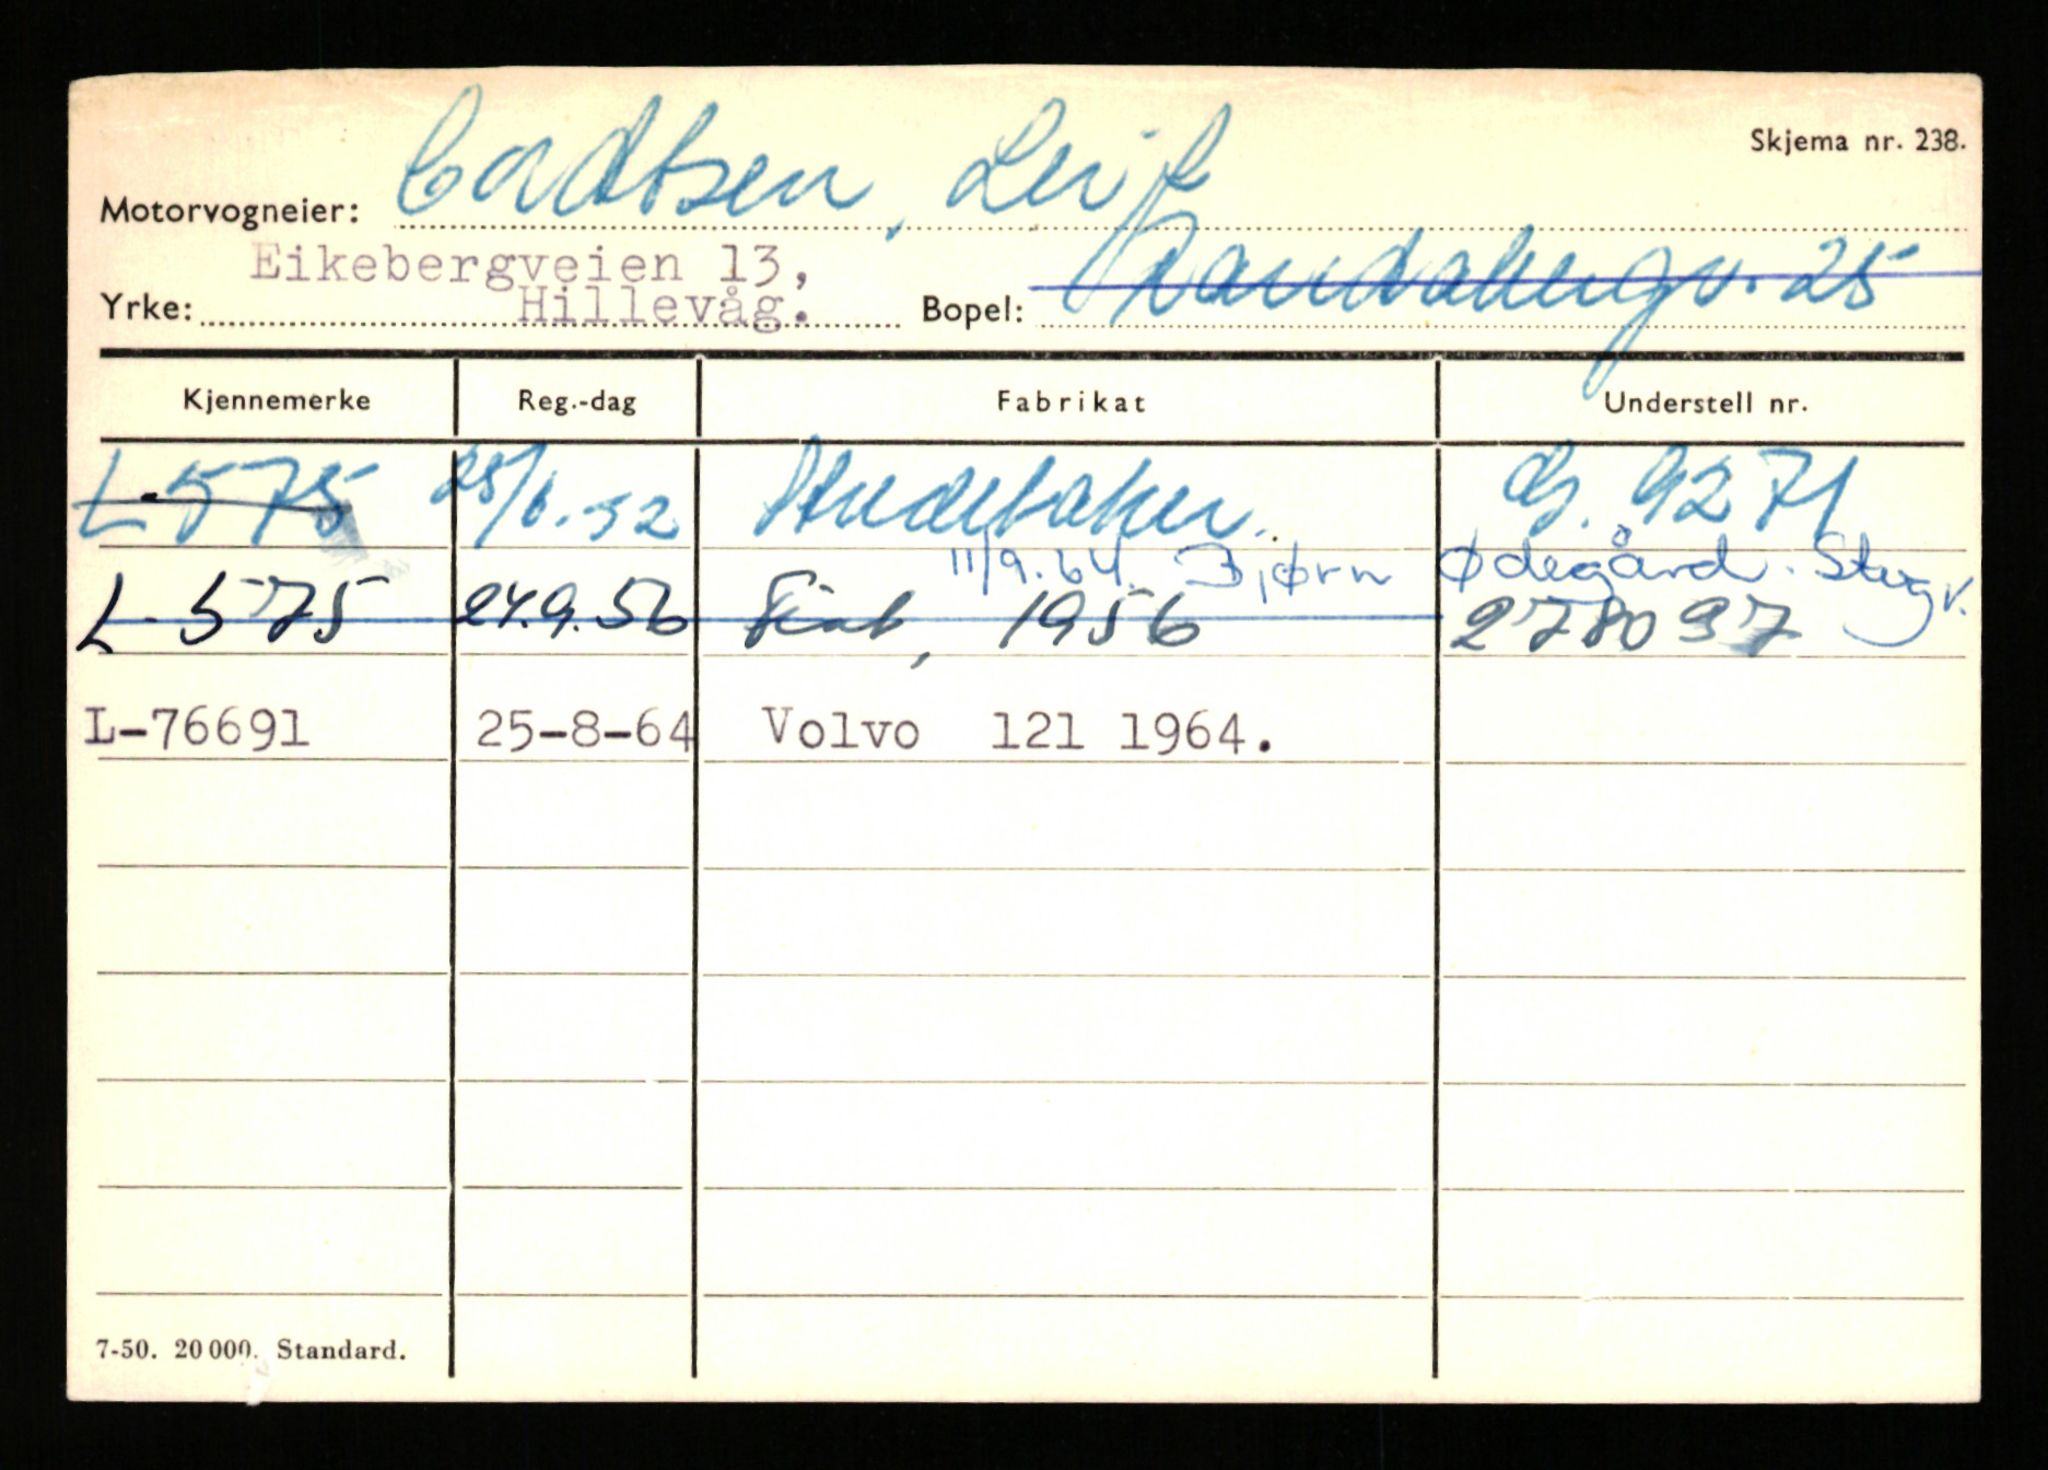 Skjema nr. 238.
Motorvogneier: Cadtsen, Leif
Eikebergveien 13,
Yrke: Hillevåg. Bopel: Randabergv. 25
Kjennemerke Reg.-dag Fabrikat Understell nr.
L-575 25/6.-52 Studebaker. G. 9271
11/9.64. Bjørn Ødegård. Stegv.
L-575 24.9.56 Fiat, 1956 278097
L-76691 25-8-64 Volvo 121 1964.
7-50. 20 000. Standard.